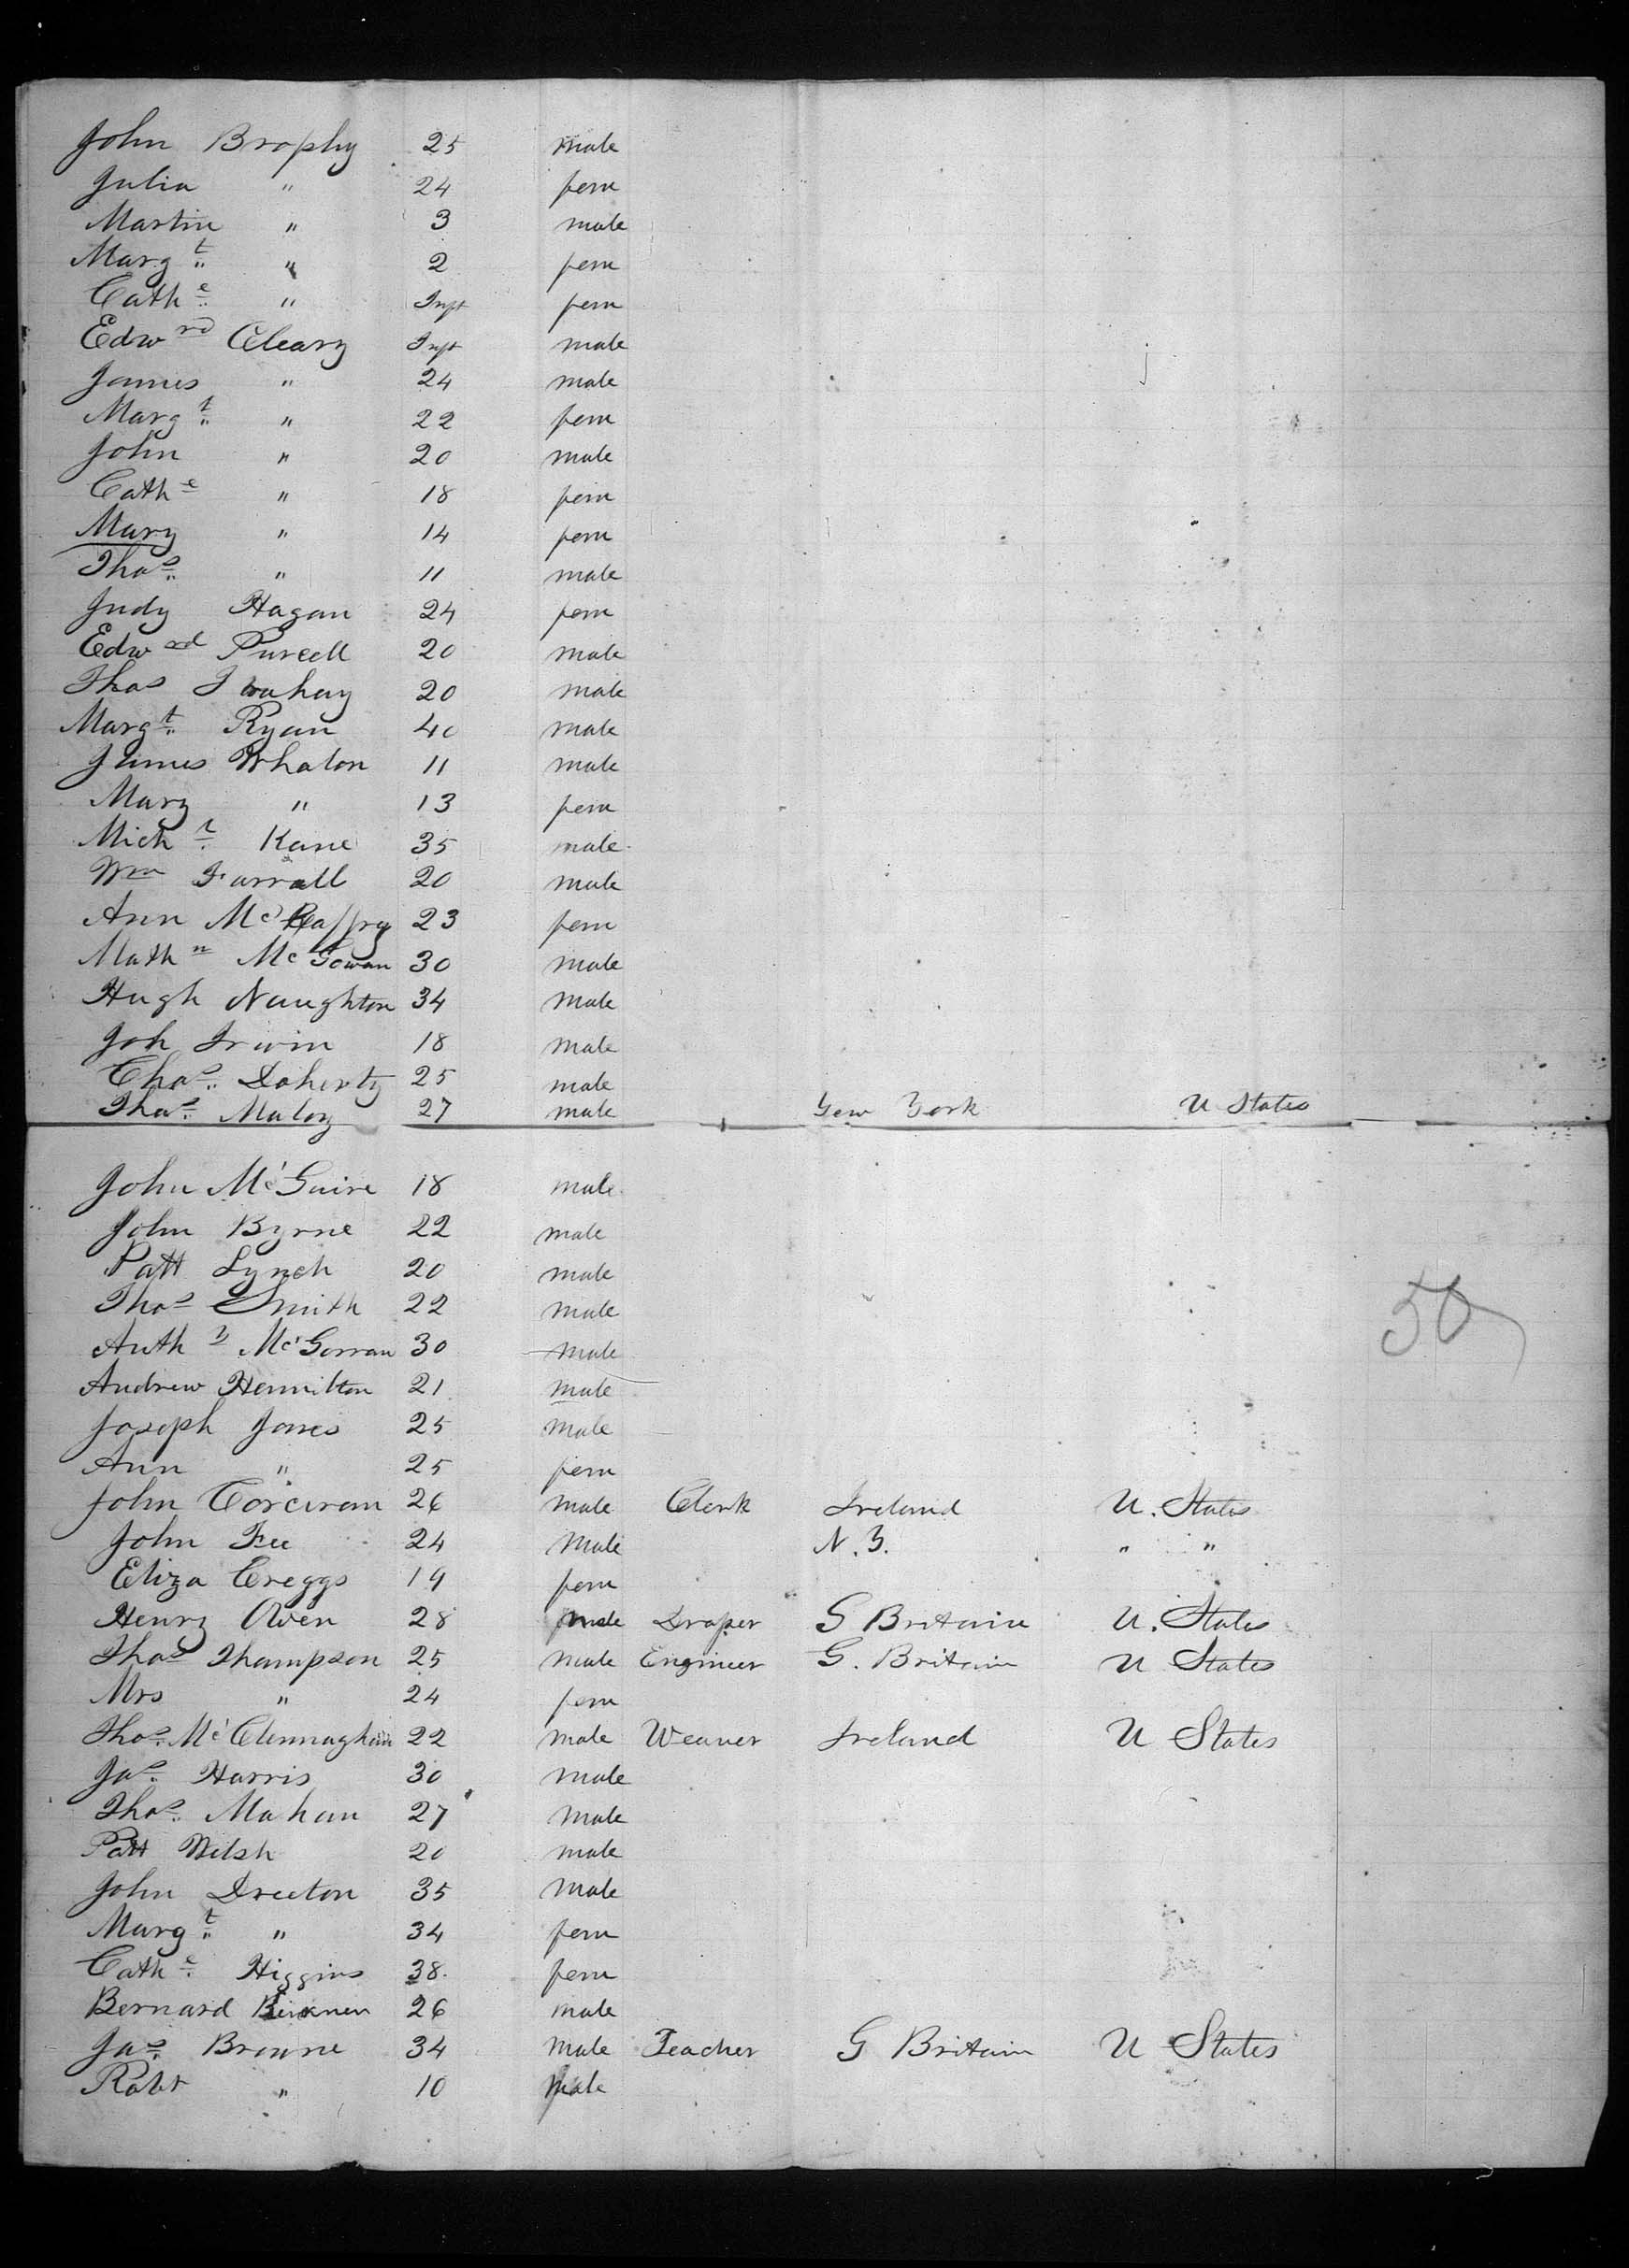 John Brophy 25 male
Julia " 24 fem
Martin " 3 male
Margt " 2 fem
Cathe " Inft fem
Edwrd Cleary Inft male
James " 24 male
Margt " 22 fem
John " 20 male
Cathe " 18 fem
Mary " 14 fem
Thos " 11 male
Judy Hagan 24 fem
Edwrd Purcell 20 male
Thos 20 male
Margt Ryan 40 male
James Whalon 11 male
Mary " 13 fem
Michl Kane 35 male
Wm Farrall 20 male
Ann 23 fem
Mathw McGowan 30 male
Hugh Naughton 34 male
Joh Irwin 18 male
Chos Doherty 25 male
Thos Maloy 27 male York U States
John McGuire 18 male
John Byrne 22 male
Patt Lynch 20 male
Thos Smith 22 male
Anthy McGorran 30 male
Andrew Hemilton 21 male
Joseph Jones 25 male
Ann " 25 fem
John Corcoran 26 male Clerk Ireland U. States
John Fee 24 male N.Y. " "
Eliza Creggs 19 fem
Henry Owen 28 male Draper G Britain U. States
Thos Thompson 25 male Engineer G. Britain U States
Mrs " 24 fem
Thos McClennaghan 22 male Weaver Ireland U States
Jas Harris 30 male
Thos Mahan 27 male
Patt Welsh 20 male
John Dreeton 35 male
Margt " 34 fem
Cathe Higgins 38 fem
Bernard 26 male
Jas Browne 34 male Teacher G Britain U States
Robt " 10 male
50